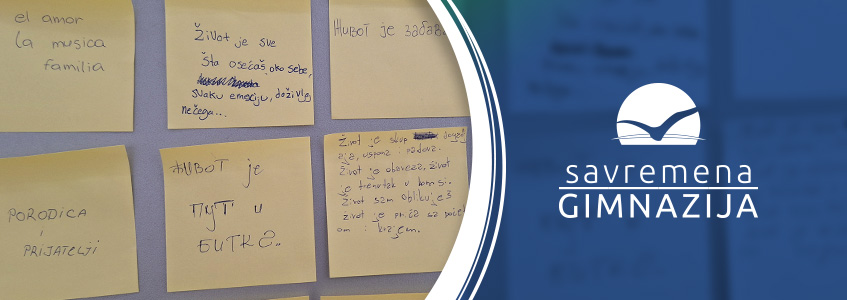 el amor
la musica
familia
Život je sve
šta osećaš oko sebe,
svaku emociju, doživljaj
nečega...
Живот је забава
PORODICA
i
PRIJATELJI
ЖИВОТ је
ПУТ и
БИТКЕ..
Život je skup
uspona i padova.
Život je obaveza. Život
je trenutak u
Život sam oblikuješ
Život je priča sa počet
om i krajem.
savremena
GIMNAZIJA